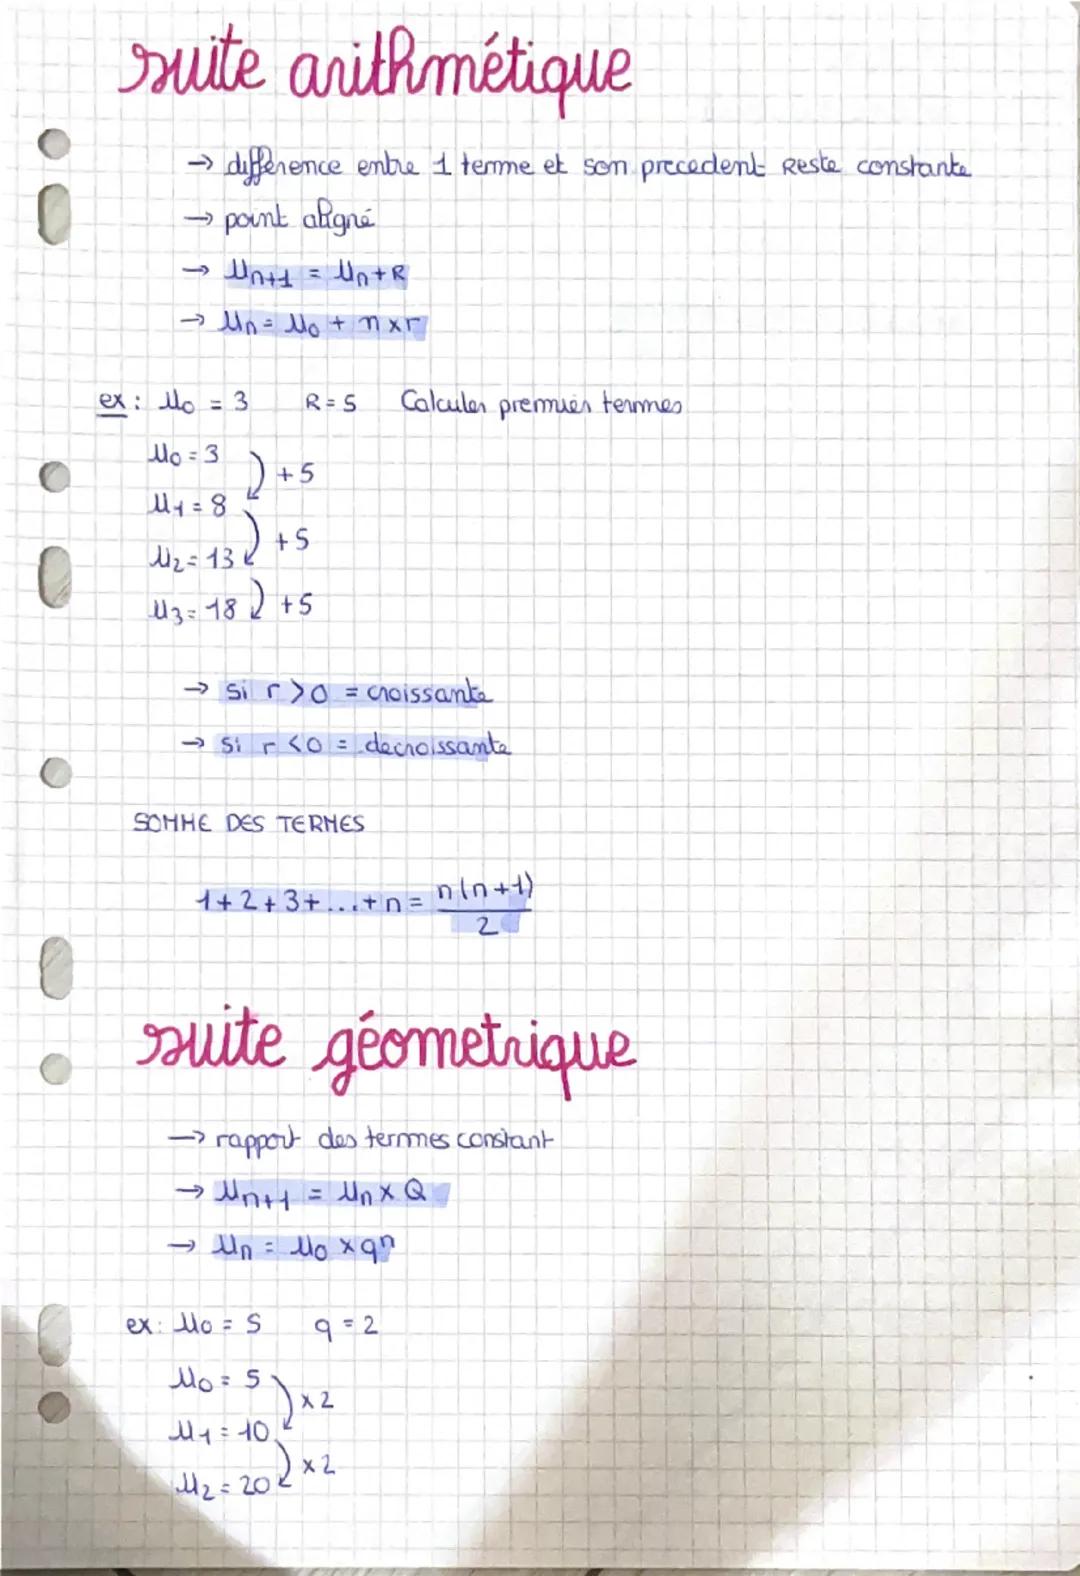 suite arithmétique
→ différence entre 1 terme et son precedent Reste constante
→ point aligné
→ Un+1 = Un + R
→ Un = U0 + n x r
ex : U0 = 3 R = 5 Calculer premiers termes
U0 = 3
+5
U1 = 8
+5
U2 = 13
U3 = 18 +5
→ si r > 0 = croissante
→ si r < 0 = decroissante
SOMME DES TERMES
1 + 2 + 3 + ... + n = n(n+1)
2
suite géometrique
→ rapport des termes constant
→ Un+1 = Un x Q
→ Un = U0 x qⁿ
ex : U0 = 5 q = 2
U0 = 5
x 2
U1 = 10
x 2
U2 = 20